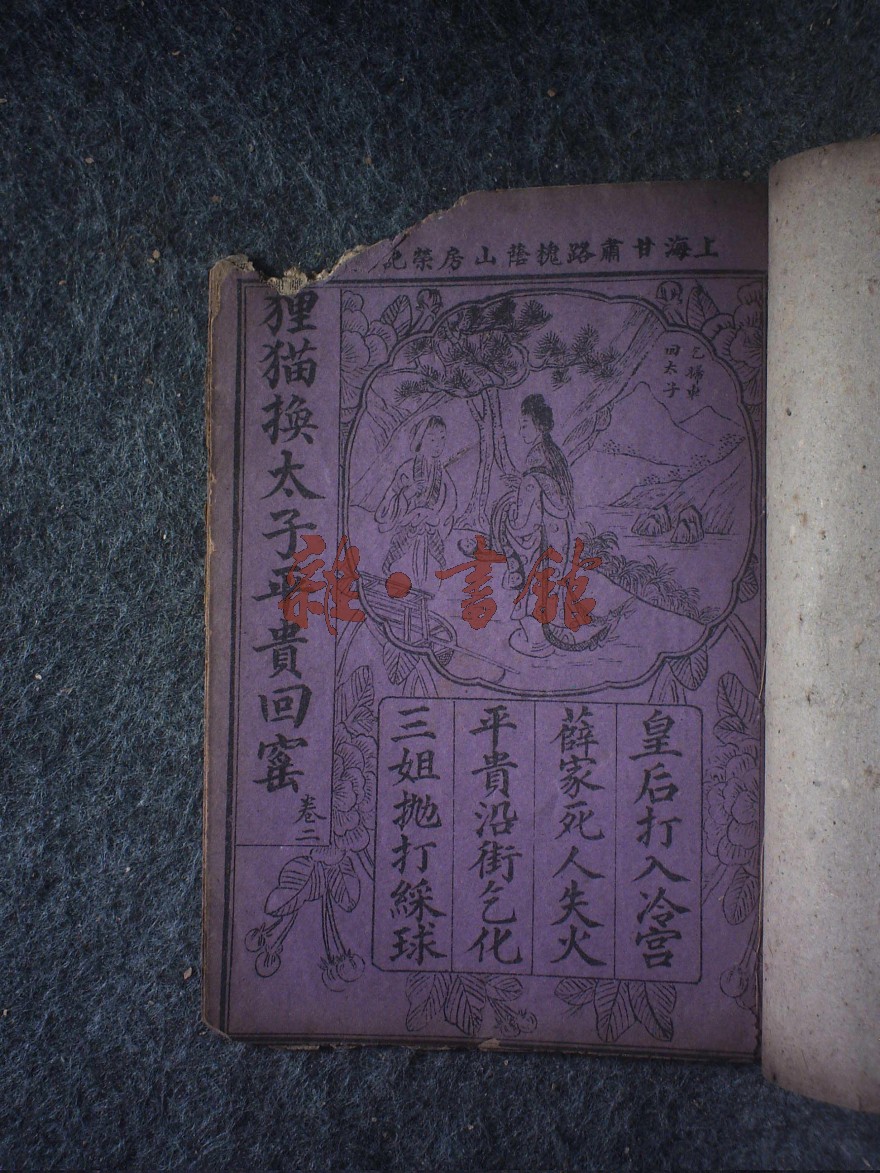 上海甘肅路槐蔭山房榮記
乞婦車
田太子
皇后打入冷宮
薛家死人失火
平貴沿街乞化
三姐抛打綵球
狸猫換太子平貴回窰
卷二
雜·書館